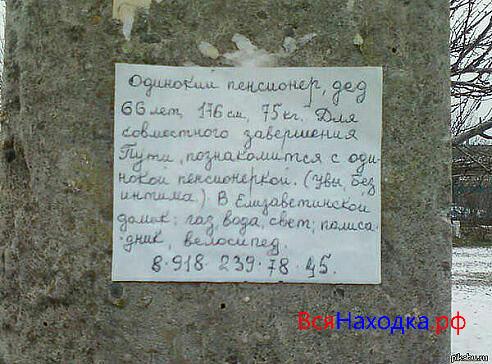 Одинокий пенсионер, дед
66 лет, 176 см, 75 кг. Для
совместного завершения
Пути, познакомится с оди-
нокой пенсионеркой. (увы, без
интима.) В Елизаветинской
домик: газ, вода, свет; полиса-
дник, велосипед.
8·918·239·78·45.
ВсяНаходка.рф
pikabu.ru